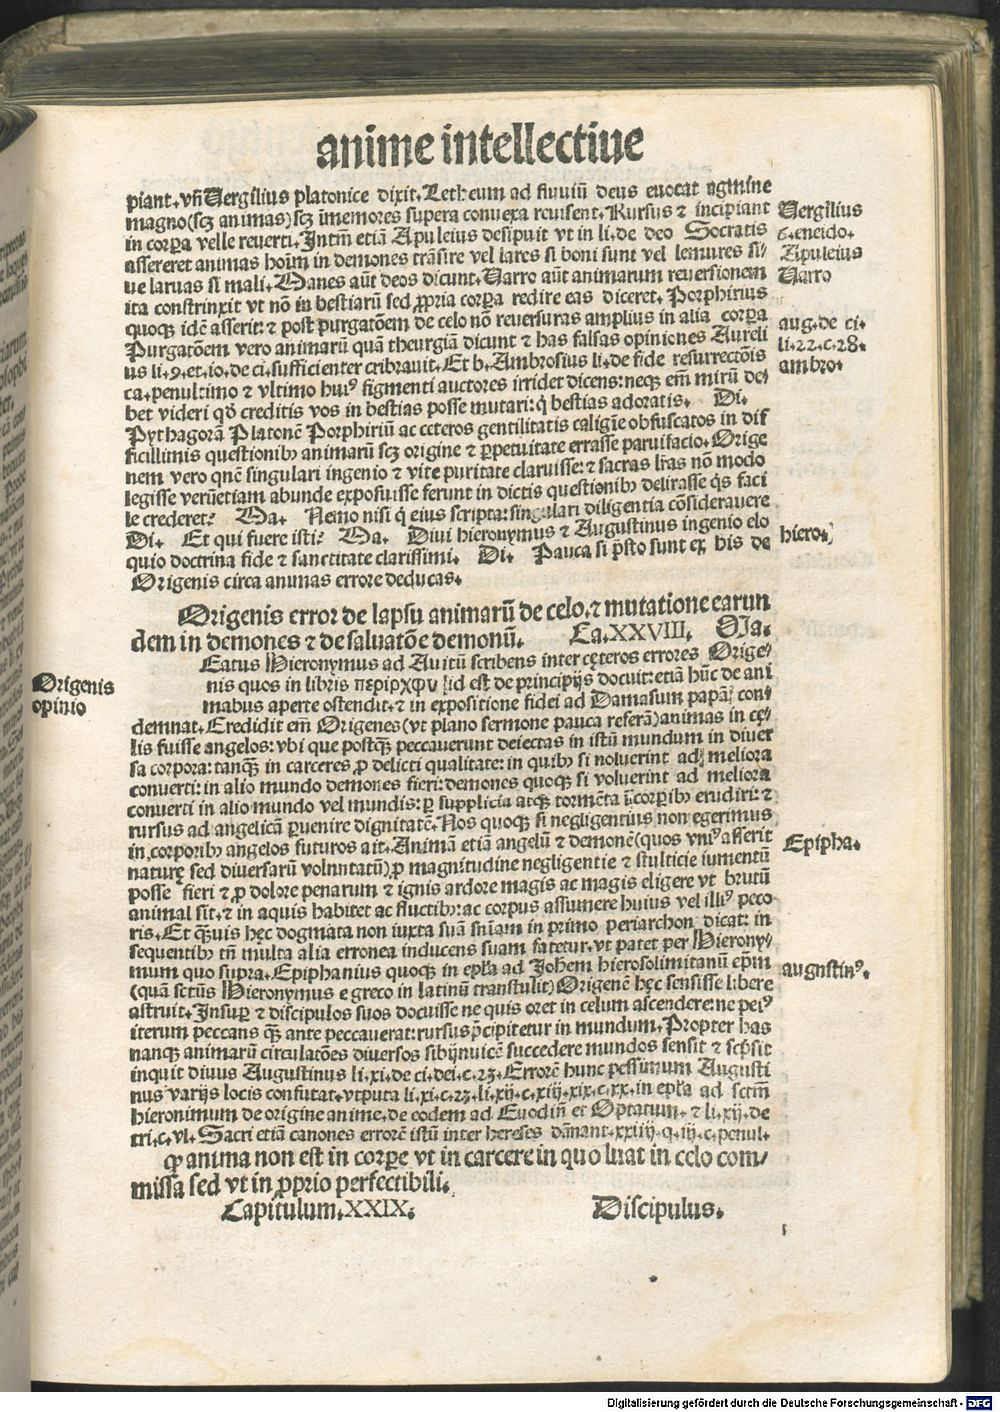 anime intellectiue
piant. vñ Uergilius platonice dixit. Letheum ad fluuiũ deus euocat agmine
magno (scȝ animas) scȝ īmemores supera conuexa reuisent. Rursus ⁊ incipiant
in corꝑa velle reuerti. Intm̃ etiã Apuleius desipuit vt in li. de deo Socratis
assereret animas hoīm in demones trãsire vel lares si boni sunt vel lemures si-
ue laruas si mali. Manes aūt deos dicunt. Uarro aūt animarum reuersionem
ita constrinxit vt nõ in bestiarũ sed ꝓpria corꝑa redire eas diceret. Porphirius
quoqȝ idẽ asserit: ⁊ post purgatõem de celo nõ reuersuras amplius in alia corꝑa
Purgatõem vero animarũ quã theurgiã dicunt ⁊ has falsas opiniones Aureli
us li. 9. et. io. de ci. sufficienter cribrauit. Et b. Ambrosius li. de fide resurrectõis
ca. penultimo ⁊ vltimo huiꝰ figmenti auctores irridet dicens: neqȝ em̃ mirũ de⸗
bet videri qđ creditis vos in bestias posse mutari: q̇ bestias adoratis. Di.
Pythagorã Platonẽ Porphiriũ ac ceteros gentilitatis caligĩe obfuscatos in dif
ficillimis questionibȝ animarũ scȝ origine ⁊ ꝑpetuitate errasse paruifacio. Orige
nem vero quẽ singulari ingenio ⁊ vite puritate claruisse: ⁊ sacras lr̃as nõ modo
legisse verũetiam abunde exposuisse ferunt in dictis questionibȝ delirasse q̇s faci
le crederet? Ma. Nemo nisi q̇ eius scripta: singulari diligentia cõsiderauere
Di. Et qui fuere isti? Ma. Diui hieronymus ⁊ Augustinus ingenio elo
quio doctrina fide ⁊ sanctitate clarissimi. Di. Pauca si p̃sto sunt ex his de
Origenis circa animas errore deducas.
Origenis error de lapsu animarũ de celo. ⁊ mutatione earun
dem in demones ⁊ de saluatõe demonũ. Ca. XXVIII. Ma.
Eatus Hieronymus ad Auitũ scribens inter cęteros errores Orige⸗
nis quos in libris περιρχφυ id est de principijs docuit: etiã hũc de ani
mabus aperte ostendit. ⁊ in expositione fidei ad Damasum papã con⸗
demnat. Credidit em̃ Origenes (vt plano sermone pauca referã) animas in cę⸗
lis fuisse angelos: vbi que postqȝ̃ peccauerunt deiectas in istũ mundum in diuer
sa corpora: tanqȝ̃ in carceres ꝓ delicti qualitate: in quibȝ si noluerint ad meliora
conuerti: in alio mundo demones fieri: demones quoqȝ si voluerint ad meliora
conuerti in alio mundo vel mundis: ꝑ supplicia atqȝ tormẽta ĩ corꝑibȝ erudiri: ⁊
rursus ad angelicã ꝑuenire dignitatẽ. Nos quoqȝ si negligentius non egerimus
in corporibȝ angelos futuros ait. Animã etiã angelũ ⁊ demonẽ (quos vniꝰ asserit
naturę sed diuersarũ voluntatũ) ꝓ magnitudine negligentie ⁊ stulticie iumentũ
posse fieri ⁊ ꝓ dolore penarum ⁊ ignis ardore magis ac magis eligere vt brutũ
animal sit. ⁊ in aquis habitet ac fluctibȝ: ac corpus assumere huius vel illiꝰ peco
ris. Et qȝ̃uis hęc dogmata non iuxta suã sñiam in primo periarchon dicat: in
sequentibȝ tñ multa alia erronea inducens suam fatetur. vt patet per Hierony⸗
mum quo supra. Epiphanius quoqȝ in epl̃a ad Johẽm hierosolimitanũ ep̃m
(quã sctũs Hieronymus e greco in latinũ transtulit) Origenẽ hęc sensisse libere
astruit. Insuꝑ ⁊ discipulos suos docuisse ne quis oret in celum ascendere: ne peiꝰ
iterum peccans qȝ̃ ante peccauerat: rursus p̃cipitetur in mundum. Propter has
nanqȝ animarũ circulatões diuersos sibijnuicẽ succedere mundos sensit ⁊ scp̃sit
inquit diuus Augustinus li. xi. de ci. dei. c. 23. Errorẽ hunc pessimum Augusti
nus varijs locis confutat. vtputa li. xi. c. 23. li. xij. c. xiij. xix. c. xx. in epl̃a ad sctm̃
hieronimum de origine anime. de eodem ad Euodiũ et Optatum. ⁊ li. xij. de
tri. c. vl. Sacri etiã canones errorẽ istũ inter hereses dãnant. xxiiij. q. iij. c. penul.
ꝙ anima non est in corꝑe vt in carcere in quo luat in celo com⸗
missa sed vt in ꝓprio perfectibili.
Capitulum. XXIX. Discipulus.
Uergilius
6. eneido.
Apuleius
Uarro
aug. de ci.
li. 22. c. 28.
ambro.
hiero.
Origenis
opinio
Epipha.
augustinꝰ.
Digitalisierung gefördert durch die Deutsche Forschungsgemeinschaft - DFG